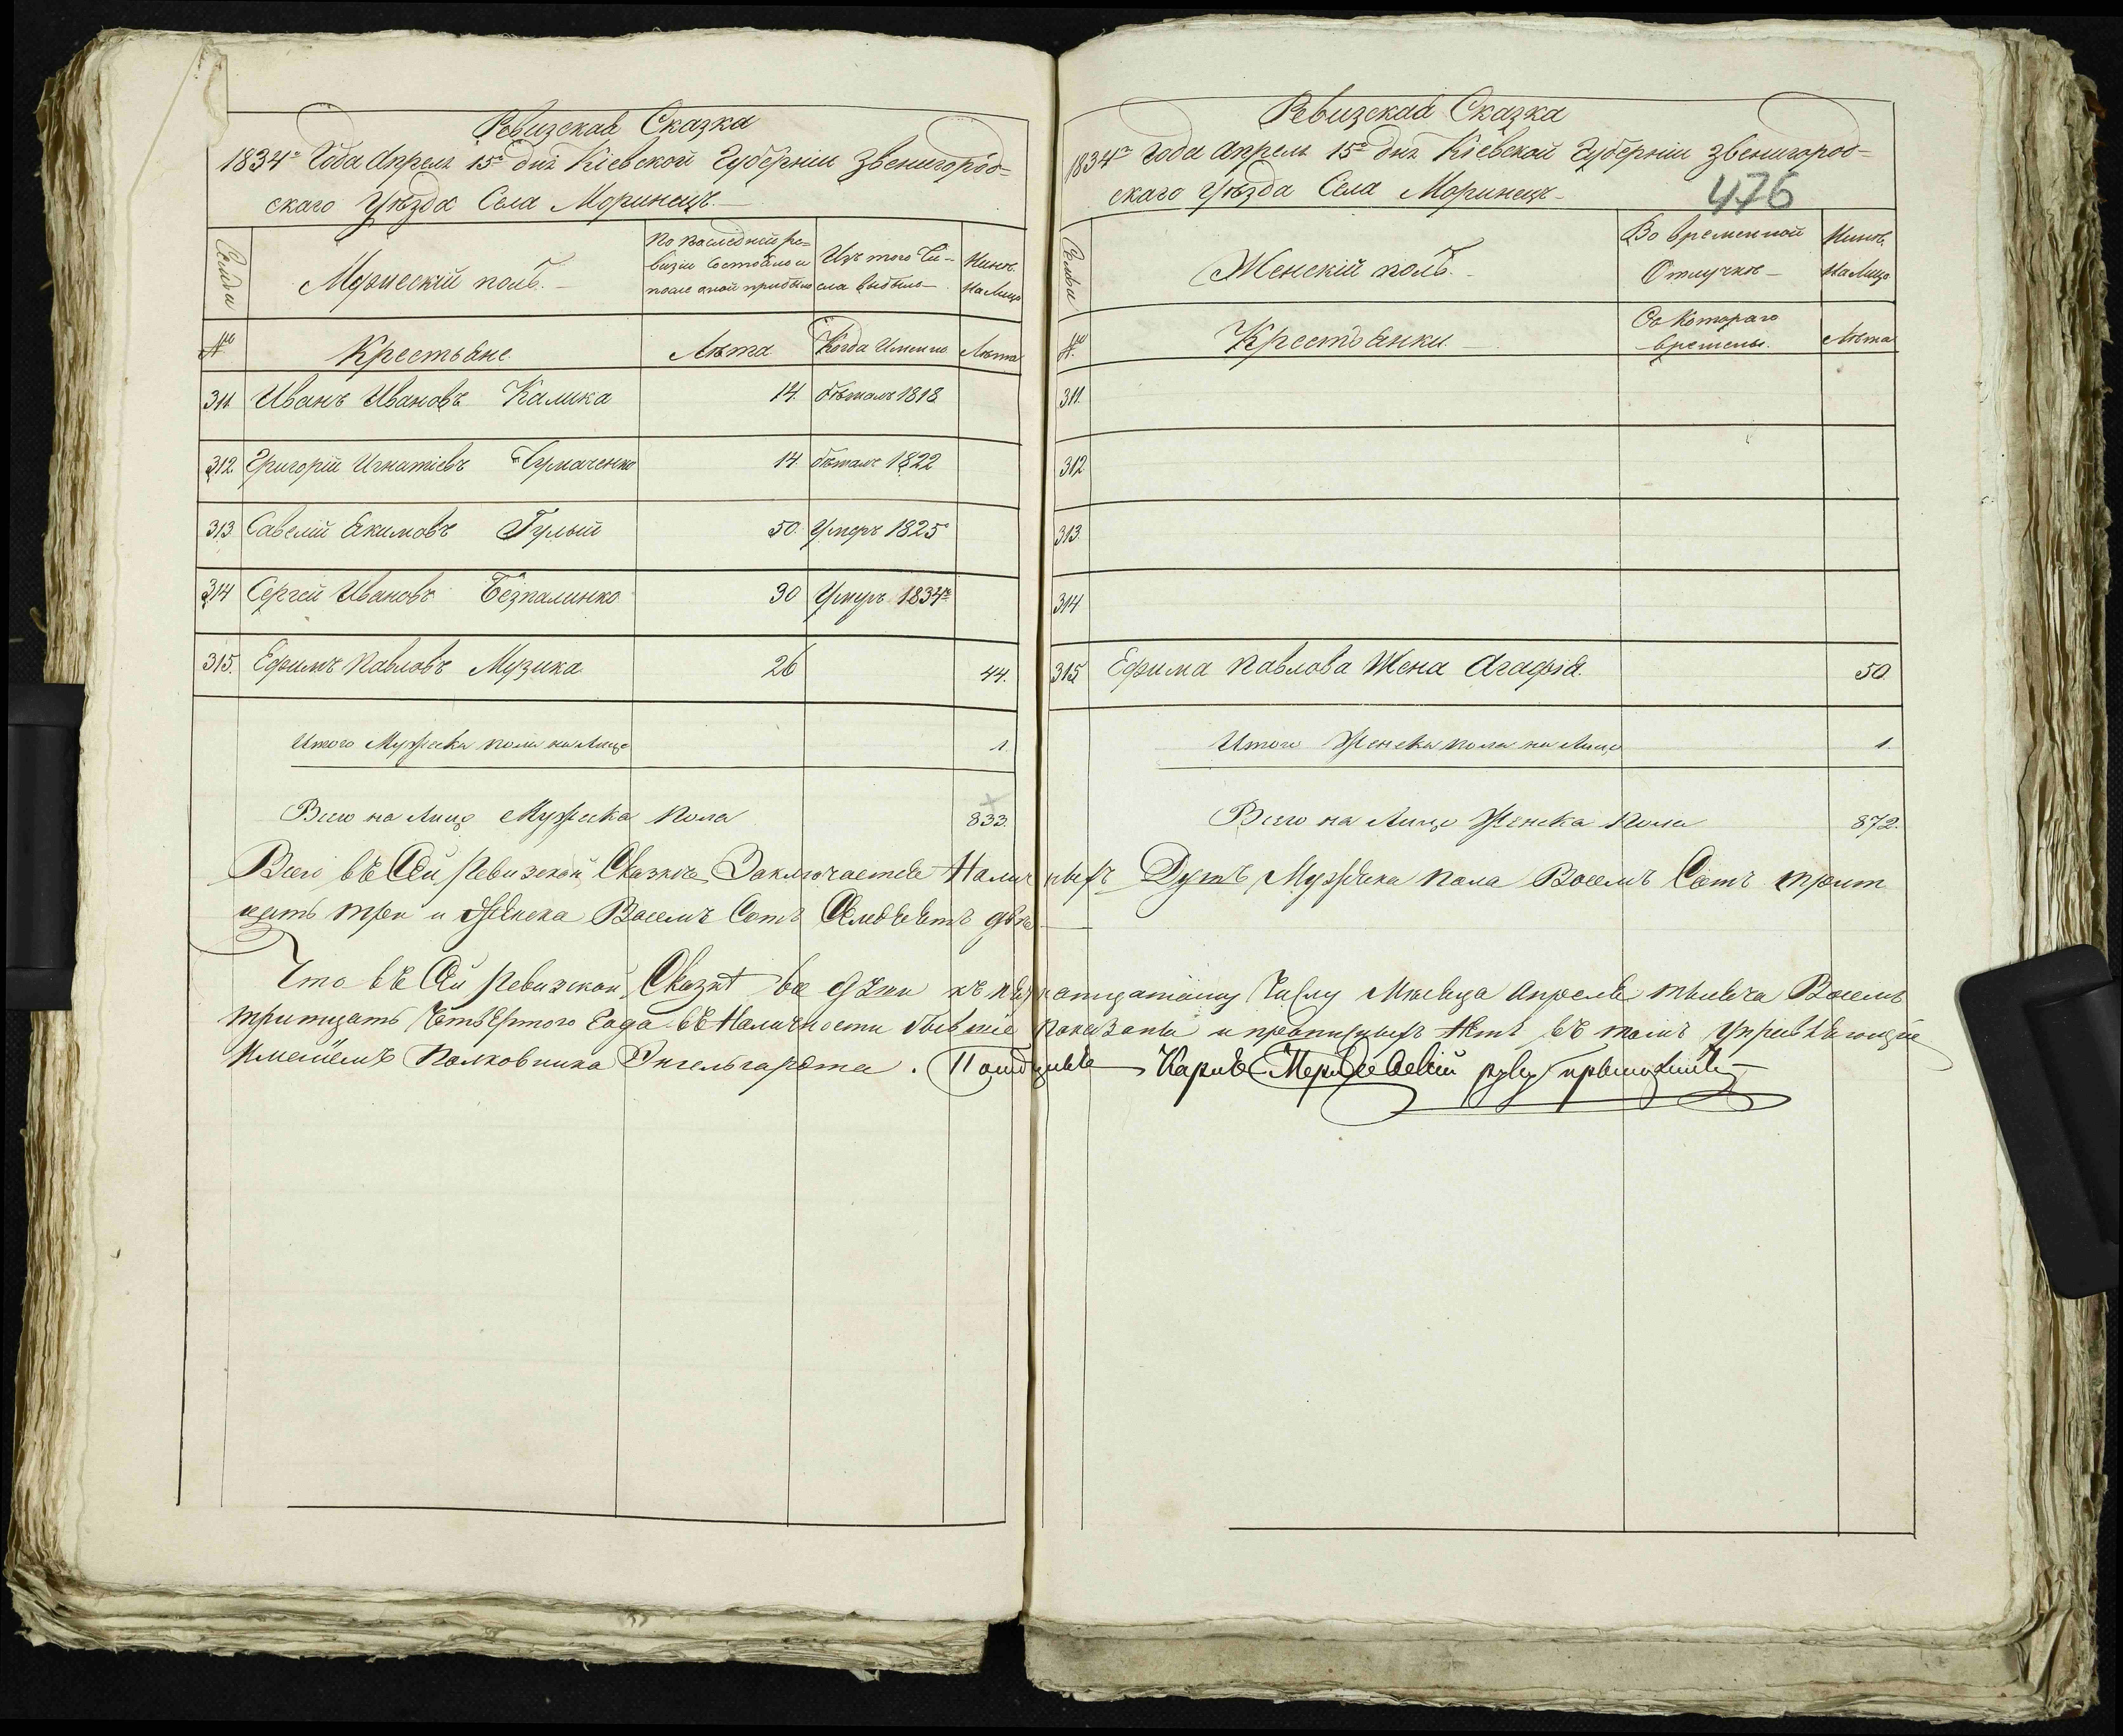 Ревизская Сказка
1834го Года Апреля 15го дня Кіевской Губерніи Звенигород=
скаго Уѣзда Села Моринецъ.
Семьи
Мужескій полъ.
По последней ре=
визіи состояло и
после оной прибыло
Изъ того Чи-
сла выбыло
Нынѣ
на Лицо
№
Крестьяне
Лѣта
Когда Именно
Лѣта
311. Иванъ Ивановъ Калика 14. бѣжалъ 1818
312. Григорій Игнатіевъ 14. бѣжалъ 1822
313. Савелий Екимовъ Гулый 50. Умеръ 1825
314 Сергей Ивановъ Безпалинко 30 Умеръ 1834го
315. Ефимъ Павловъ Музика 26 44.
Итого Мужеска пола на Лицо 1.
Всего на Лицо Мужеска пола 833.
Ревизская Сказка
1834го Года Апреля 15го дня Кіевской Губерніи Звенигород=
скаго Уѣзда Села Моринецъ
476
Семьи
Женскій полъ.
Во временной
Отлучкѣ
Нынѣ
на Лицо
№
Крестьянки
Съ Котораго
времены.
Лѣта
311.
312
313.
314
315 Ефима Павлова Жена Агафія. 50.
Итого Женска пола на Лицо 1.
Всего на Лицо Женска Пола 872.
Всего въ Сей Ревизской Сказкѣ Заключается Наличныхъ Душъ Мужеска пола Восемъ Сотъ трит
цать три и Женска Восемъ Сотъ Семдесятъ два
Что въ Сей Ревизской Сказкѣ все души къ пятнатцатому Числу Месяца Апреля тысяча Восемь
тритцать Четвертого Года въ Наличности бывшие показаны и прописныхъ нѣтъ въ томъ Управляющей
Имениемъ Полковника Энгельгардта. Карпъ руку приложилъ